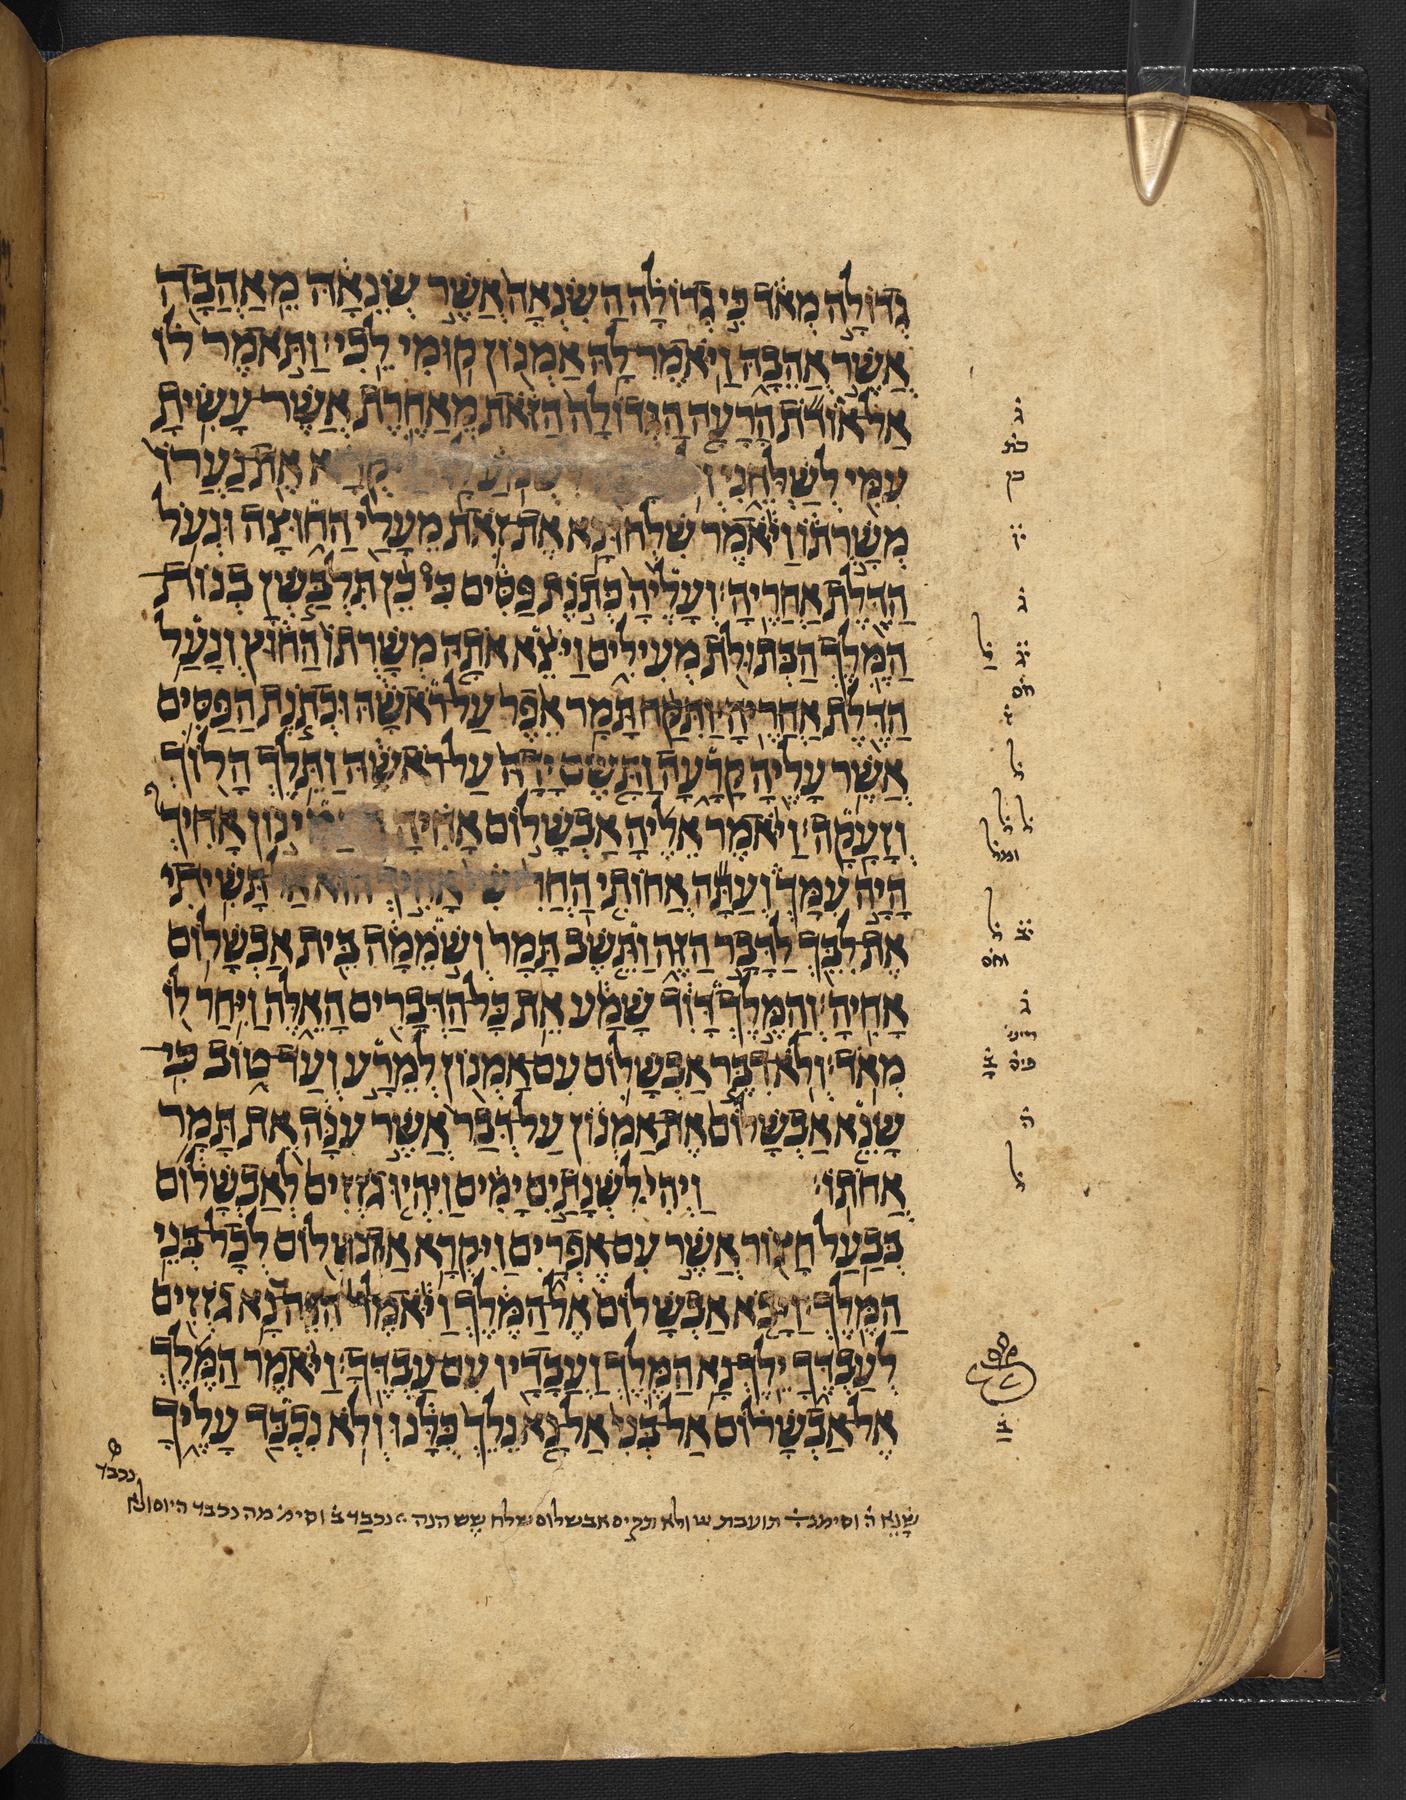 גְּדוֹלָה מְאֹד כִּי גְדוֹלָה הַשִּׂנְאָה אֲשֶׁר שְׂנֵאָהּ מֵאַהֲבָה
אֲשֶׁר אֲהֵבָהּ וַיֹּאמֶר לָהּ אַמְנוֹן קוּמִי לֵכִי׃ וַתֹּאמֶר לוֹ
אַל אוֹדֹת הָרָעָה הַגְּדוֹלָה הַזֹּאת מֵאַחֶרֶת אֲשֶׁר עָשִׂיתָ
עִמִּי לְשַׁלְּחֵנִי לִשְׁמֹעַ אֶת נַעֲרוֹ
מְשָׁרְתוֹ וַיֹּאמֶר שִׁלְחוּ נָא אֶת זֹאת מֵעָלַי הַחוּצָה וּנְעֹל
הַדֶּלֶת אַחֲרֶיהָ׃ וְעָלֶיהָ כְּתֹנֶת פַּסִּים כִּי כֵן תִּלְבַּשְׁןָ בְנוֹת
הַמֶּלֶךְ הַבְּתוּלֹת מְעִילִים וַיֹּצֵא אֹתָהּ מְשָׁרְתוֹ הַחוּץ וְנָעַל
הַדֶּלֶת אַחֲרֶיהָ׃ וַתִּקַּח תָּמָר אֵפֶר עַל רֹאשָׁהּ וּכְתֹנֶת הַפַּסִּים
אֲשֶׁר עָלֶיהָ קָרָעָה וַתָּשֶׂם יָדָהּ עַל רֹאשָׁהּ וַתֵּלֶךְ הָלוֹךְ
וְזָעָקָה׃ וַיֹּאמֶר אֵלֶיהָ אַבְשָׁלוֹם אָחִיהָ אָחִיךְ
הָיָה עִמָּךְ וְעַתָּה אֲחוֹתִי הַחֲרִישִׁי אָחִיךְ הוּא אַל תָּשִׁיתִי
אֶת לִבֵּךְ לַדָּבָר הַזֶּה וַתֵּשֶׁב תָּמָר וְשֹׁמֵמָה בֵּית אַבְשָׁלוֹם
אָחִיהָ׃ וְהַמֶּלֶךְ דָּוִד שָׁמַע אֵת כָּל הַדְּבָרִים הָאֵלֶּה וַיִּחַר לוֹ
מְאֹד׃ וְלֹא דִבֶּר אַבְשָׁלוֹם עִם אַמְנוֹן לְמֵרָע וְעַד טוֹב כִּי
שָׂנֵא אַבְשָׁלוֹם אֶת אַמְנוֹן עַל דְּבַר אֲשֶׁר עִנָּה אֵת תָּמָר
אֲחֹתוֹ׃ וַיְהִי לִשְׁנָתַיִם יָמִים וַיִּהְיוּ גֹזְזִים לְאַבְשָׁלוֹם
בְּבַעַל חָצוֹר אֲשֶׁר עִם אֶפְרָיִם וַיִּקְרָא אַבְשָׁלוֹם לְכָל בְּנֵי
הַמֶּלֶךְ׃ וַיָּבֹא אַבְשָׁלוֹם אֶל הַמֶּלֶךְ וַיֹּאמֶר הִנֵּה נָא גֹזְזִים
לְעַבְדֶּךָ יֵלֶךְ נָא הַמֶּלֶךְ וַעֲבָדָיו עִם עַבְדֶּךָ׃ וַיֹּאמֶר הַמֶּלֶךְ
אֶל אַבְשָׁלוֹם אַל בְּנִי אַל נָא נֵלֵךְ כֻּלָּנוּ וְלֹא נִכְבַּד עָלֶיךָ
נכבד
שָׂנֵא ה וסימנ תועבת ולא תקים אבשלום שלח שש הנה נכבד ב וסימ מה נכבד היום ולא